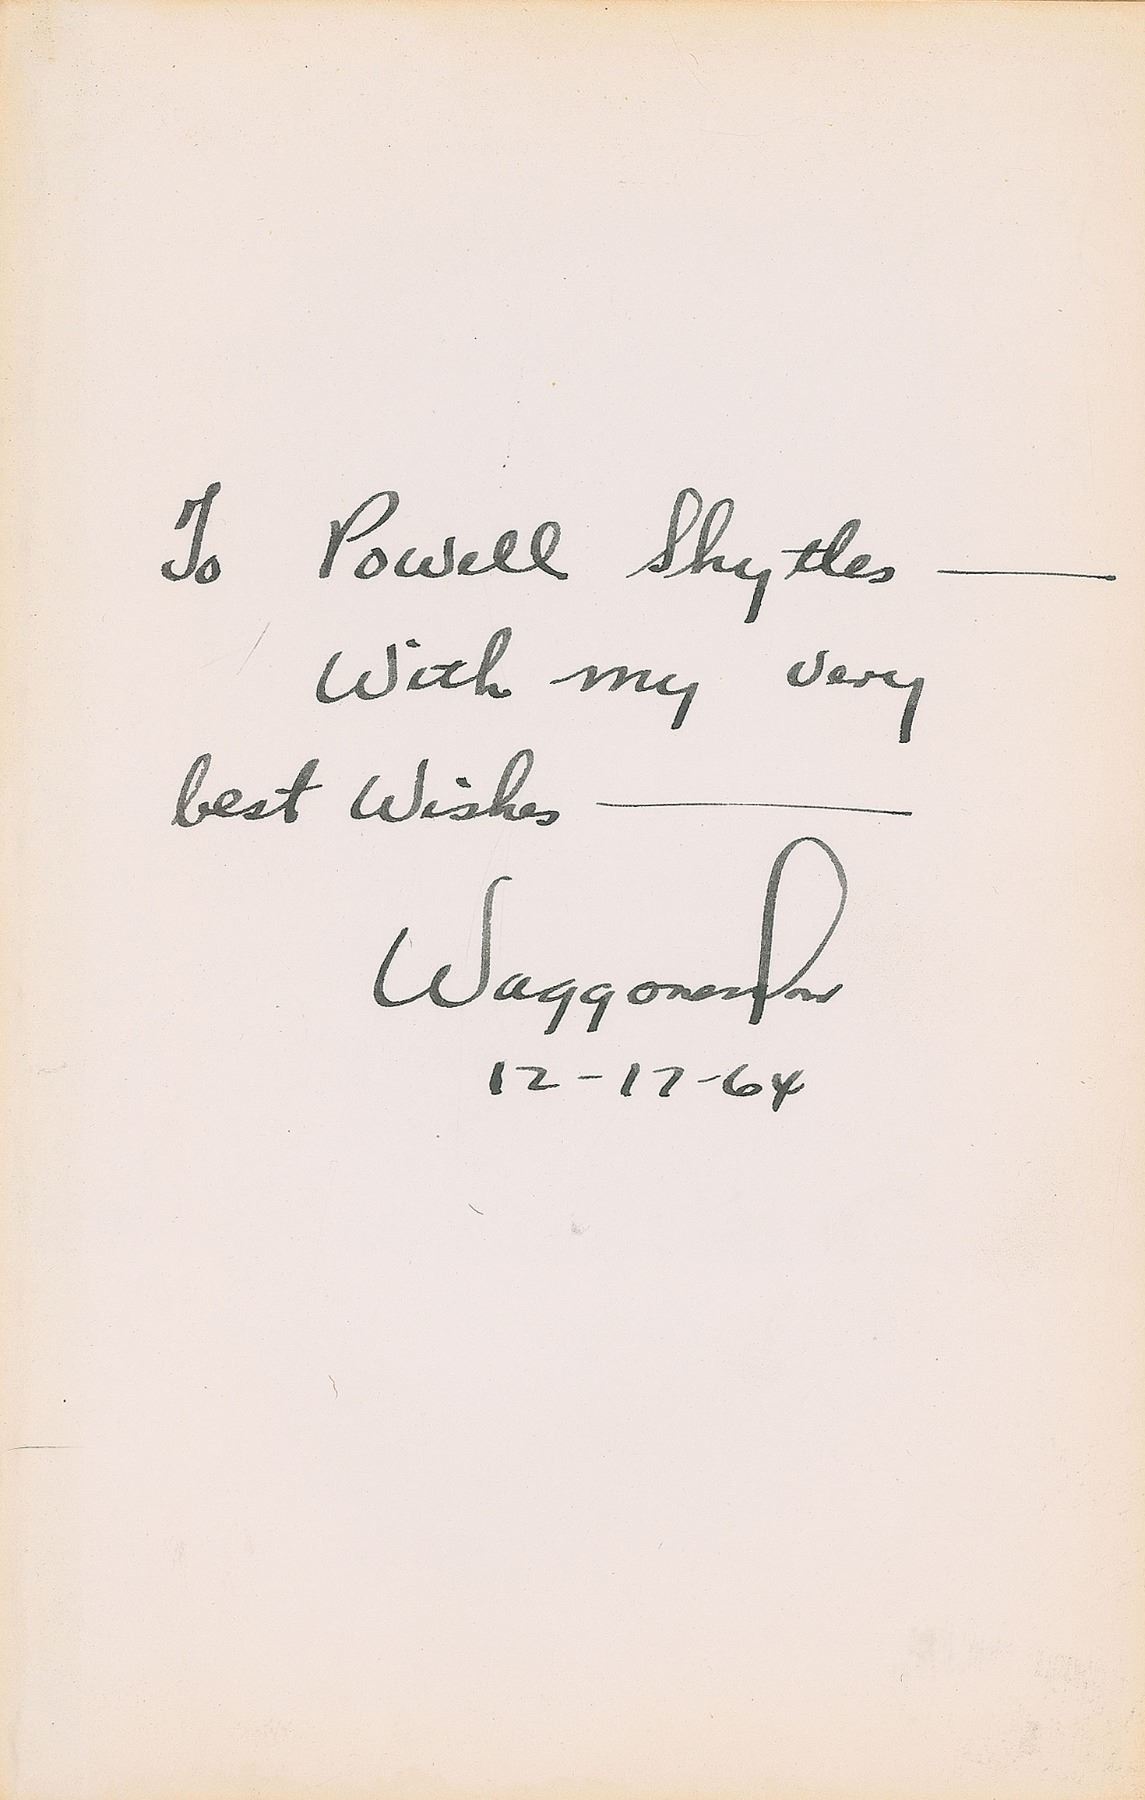 To Powell Shytles —
With my very
best Wishes —
Waggoner Carr
12-17-64